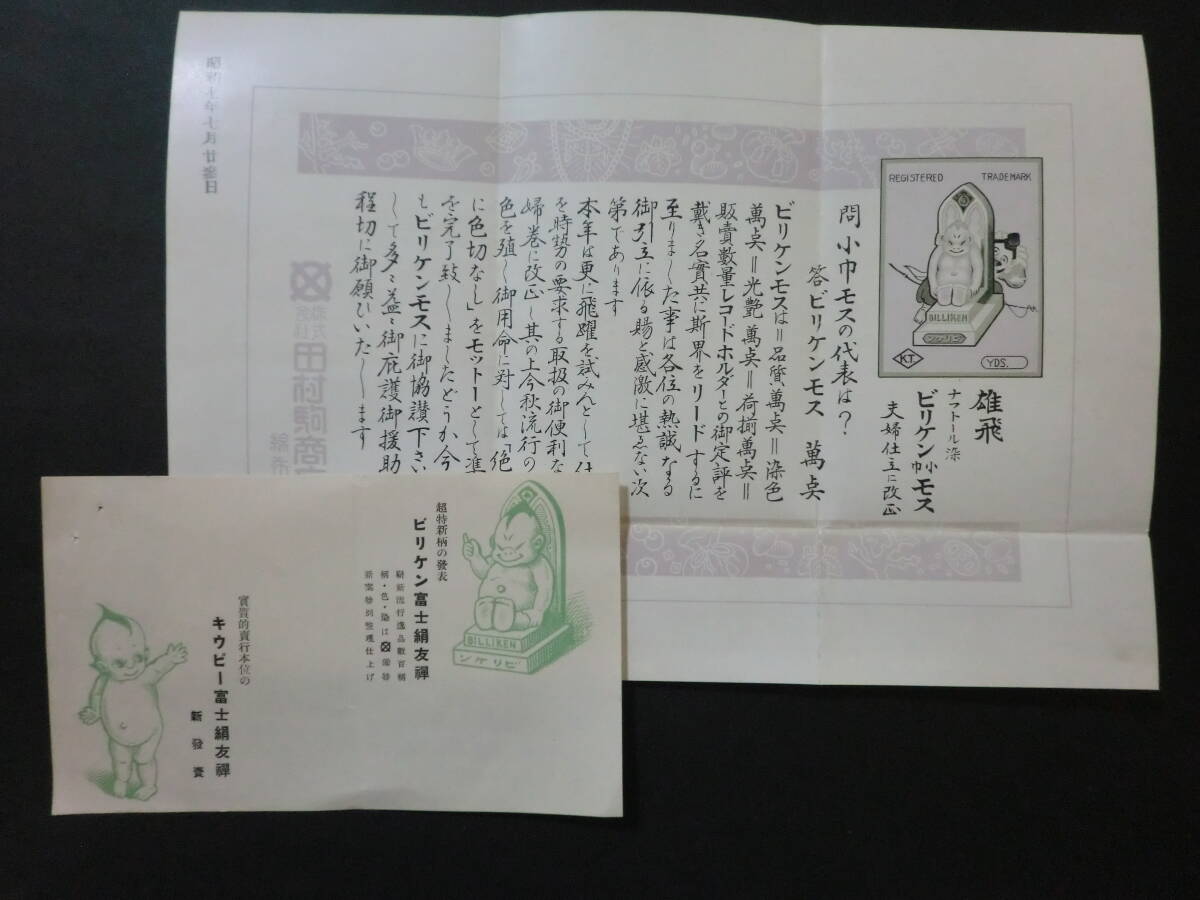 REGISTERED TRADEMARK
BILLIKEN
ンケリビ
KT
YDS.
雄飛
ナフトール染
ビリケン小巾モス
夫婦仕立に改正
問 小巾モスの代表は?
答ビリケンモス 萬点
ビリケンモスは=品質、萬点=染色
萬点=光艶 萬点=荷揃萬点=
販賣數量レコードホルダーとの御定評を
戴き名實共に斯界をリードするに
至りました事は各位の熱誠なる
御引立に依る賜と感激に堪ゑない次
第であります
本年は更に飛躍を試みんとして
を時勢の要求する取扱の御便利な
婦巻に改正し其の上今秋流行の
色を殖し御用命に対しては「絶
に色切なし」をモットーとして準
を完了致しましたどうか、今
もビリケンモスに御協讃下さい
して多々益々御庇護御援助
程切に御願ひいたします
昭和七年七月廿
田村駒商
超特新柄の發表
ビリケン富士絹友禪
嶄新流行逸品數百種
柄・色・染は
新案特別整理仕上げ
BILLIKEN
ンケリビ
實質的賣行本位の
キウピー富士絹友禪
新發賣